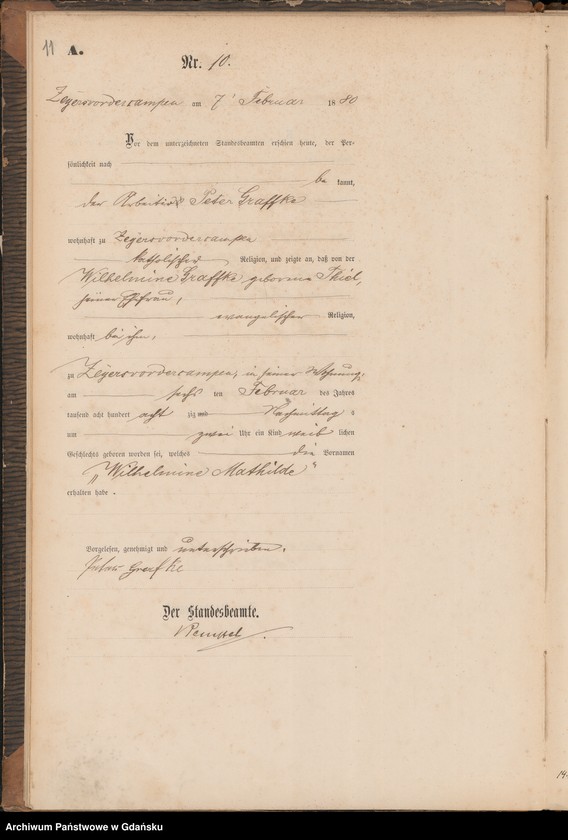 11
A.
Nr. 10.
Zeyersvordercampen am 7t Februar 1880
Vor dem unterzeichneten Standesbeamten erschien heute, der Per-
sönlichkeit nach
be kannt,
der Arbeiter Peter Graffke
wohnhaft zu Zeyersvordercampen
katholischer Religion, und zeigte an, daß von der
Wilhelmine Graffke geborene Thiel,
seiner Ehefrau,
evangelischer Religion,
wohnhaft bei ihm,
zu Zeyersvordercampen, in seiner Wohnung,
am sechs ten Februar des Jahres
tausend acht hundert acht zig und Nachmittag s
um zwei Uhr ein Kind weib lichen
Geschlechts geboren worden sei, welches die Vornamen
„Wilhelmine Mathilde“
erhalten habe.
Vorgelesen, genehmigt und unterschrieben.
Peter Grafke
Der Standesbeamte.
Archiwum Państwowe w Gdańsku